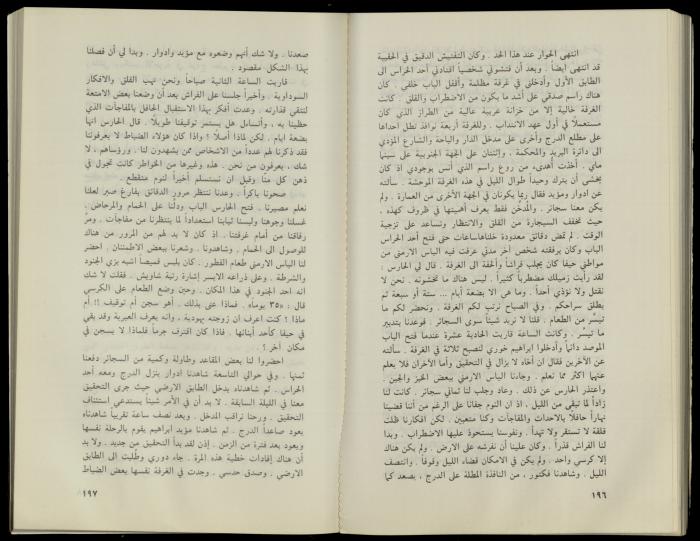 انتهى الحوار عند هذا الحد . وكان التفتيش الدقيق في الحقيبة
قد انتهى أيضاً . وبعد أن فتشوني شخصياً اقتادني أحد الحراس الى
الطابق الأول وأدخلني في غرفة مظلمة وأقفل الباب خلفي . كان
هناك راسم صدقي على أشد ما يكون من الاضطراب والقلق . كانت
الغرفة خالية إلا من خزانة غريبة عالية من الطراز الذي كان
مستعملاً في أول عهد الانتداب . وللغرفة أربعة نوافذ تطل احداها
على مطلع الدرج وأخرى على مدخل الدار والباحة والشارع المؤدي
الى دائرة البريد والمحكمة ، واثنتان على الجهة الجنوبية على سينما
ماي . أخذت أهدىء من روع راسم الذي أنس بوجودي اذ كان
يخشى أن يترك وحيداً طوال الليل في هذه الغرفة الموحشة . سألته
عن ادوار ومؤيد فقال ربما يكونان في الجهة الأخرى من العمارة . ولم
يكن معنا سجائر . والمدخن فقط يعرف أهميتها في ظروف كهذه ،
حيث تخفف السيجارة من القلق والانتظار وتساعد على تزجية
الوقت . لم تمض دقائق معدودة خلناها ساعات حتى فتح أحد الحراس
الباب وكان يرفقته شخص آخر مدني عرفت فيه الياس الارمني من
مواطني حيفا كان يحلب فراشاً وألحفة الى الغرفة . قال لي الحارس :
لقد رأيت زميلك مضطرباً كثيراً . ليس هناك ما تخشونه . نحن لا
نقتل ولا نؤذي أحداً . وما هي الا بضعة أيام ... ستة أو سبعة ثم
يطلق سراحكم . وفي الصباح نرتب لكم الغرفة . ونحضر لكم ما
تيسّر من الطعام . قلنا لا نريد شيئاً سوى السجائر . فوعدنا بتدبير
ما تيسّر . وكانت الساعة قاربت الحادية عشرة عندما فتح الباب
الموصد دائماً وأدخلوا ابراهيم خوري لنصبح ثلاثة في الغرفة . سألته
عن الآخرين فقال ان أخاه لا يزال في التحقيق وأما الآخران فلا يعلم
عنهما أكثر مما نعلم . وجاءنا الياس الارمني ببعض الخبز والجبن .
واعتذر الحارس عن ذلك . وعاد وجلب لنا ثماني سجائر . كانت لنا
زاداً لما تبقى من الليل ، اذ ان النوم جفانا على الرغم من أننا قضينا
نهاراً حافلاً بالاحداث والمفاجآت وكنا متعبين . لكن افكارنا ظلت
قلقة لا تستقر ولا تهدأ . ونفوسنا يستحوذ عليها الاضطراب . وبدا
لنا الفراش قذراً . وكان علينا أن نفرشه على الارض . ولم يكن هناك
إلا كرسي واحد . ولم يكن في الامكان قضاء الليل وقوفاً . وانتصف
الليل . وشاهدنا فكتور ، من النافذة المطلة على الدرج ، يصعد كما
١٩٦
صعدنا . ولا شك أنهم وضعوه مع مؤيد وادوار . وبدا لي أن فصلنا
بهذا الشكل مقصود .
قاربت الساعة الثانية صباحاً ونحن نهب القلق والافكار
السوداوية . وأخيراً جلسنا على الفراش بعد أن وضعنا بعض الامتعة
لنتقي قذارته . وعدت أفكر بهذا الاستقبال الحافل بالمفاجآت الذي
حظينا به ، وأتساءل هل يستمر توقيفنا طويلاً . قال الحارس انها
بضعة أيام . لكن لماذا أصلاً ؟ واذا كان هؤلاء الضباط لا يعرفوننا
فقد ذكرنا لهم عدداً من الاشخاص ممن يشهدون لنا . ورؤساهم ، لا
شك ، يعرفون من نحن . هذه وغيرها من الخواطر كانت تجول في
ذهن كل منّا وقبل ان نستسلم أخيراً لنوم متقطع .
صحونا باكراً . وعدنا ننتظر مرور الدقائق بفارغ صبر لعلنا
نعلم مصيرنا . فتح الحارس الباب ودلّنا على الحمام والمرحاض .
غسلنا وجوهنا ولبسنا ثيابنا استعداداً لما ينتظرنا من مفاجآت . ومرّ
رفاقنا من أمام غرفتنا . اذ كان لا بد لهم من المرور من هناك
للوصول الى الحمام . وشاهدونا . وشعرنا ببعض الاطمئنان . احضر
لنا الياس الارمني طعام الفطور . كان يلبس قميصاً أشبه بزي الجنود
والشرطة . وعلى ذراعه الايسر إشارة رتبة شاويش . فقلت لا شك
انه احد الجنود في هذا المكان . وحين وضع الطعام على الكرسي
قال : «٣٥ يوماً» . فماذا عنى بذلك . أهو سجن أم توقيف ؟! أم
ماذا ؟ كنت اعرف ان زوجته يهودية ، وانه يعرف العبرية وقد بقي
في حيفا كأحد أبنائها . فاذا كان اقترف جرماً فلماذا لا يسجن في
مكان آخر ؟
احضروا لنا بعض المقاعد وطاولة وكمية من السجائر دفعنا
ثمنها . وفي حوالي التاسعة شاهدنا ادوار ينزل الدرج ومعه أحد
الحراس . ثم شاهدناه يدخل الطابق الارضي حيث جرى التحقيق
معنا في الليلة السابقة . لا بد أن في الأمر شيئاً يستدعي استئناف
التحقيق . ورحنا نراقب المدخل . وبعد نصف ساعة تقريباً شاهدناه
يعود صاعداً الدرج . ثم شاهدنا مؤيد ابراهيم يقوم بالرحلة نفسها
ويعود بعد فترة من الزمن . إذن لقد بدأ التحقيق من جديد . ولا بد
أن هناك إفادات خطية هذه المرة . جاء دوري وطُلبت الى الطابق
الارضي . وصدق حدسي . وجدت في الغرفة نفسها بعض الضباط
١٩٧